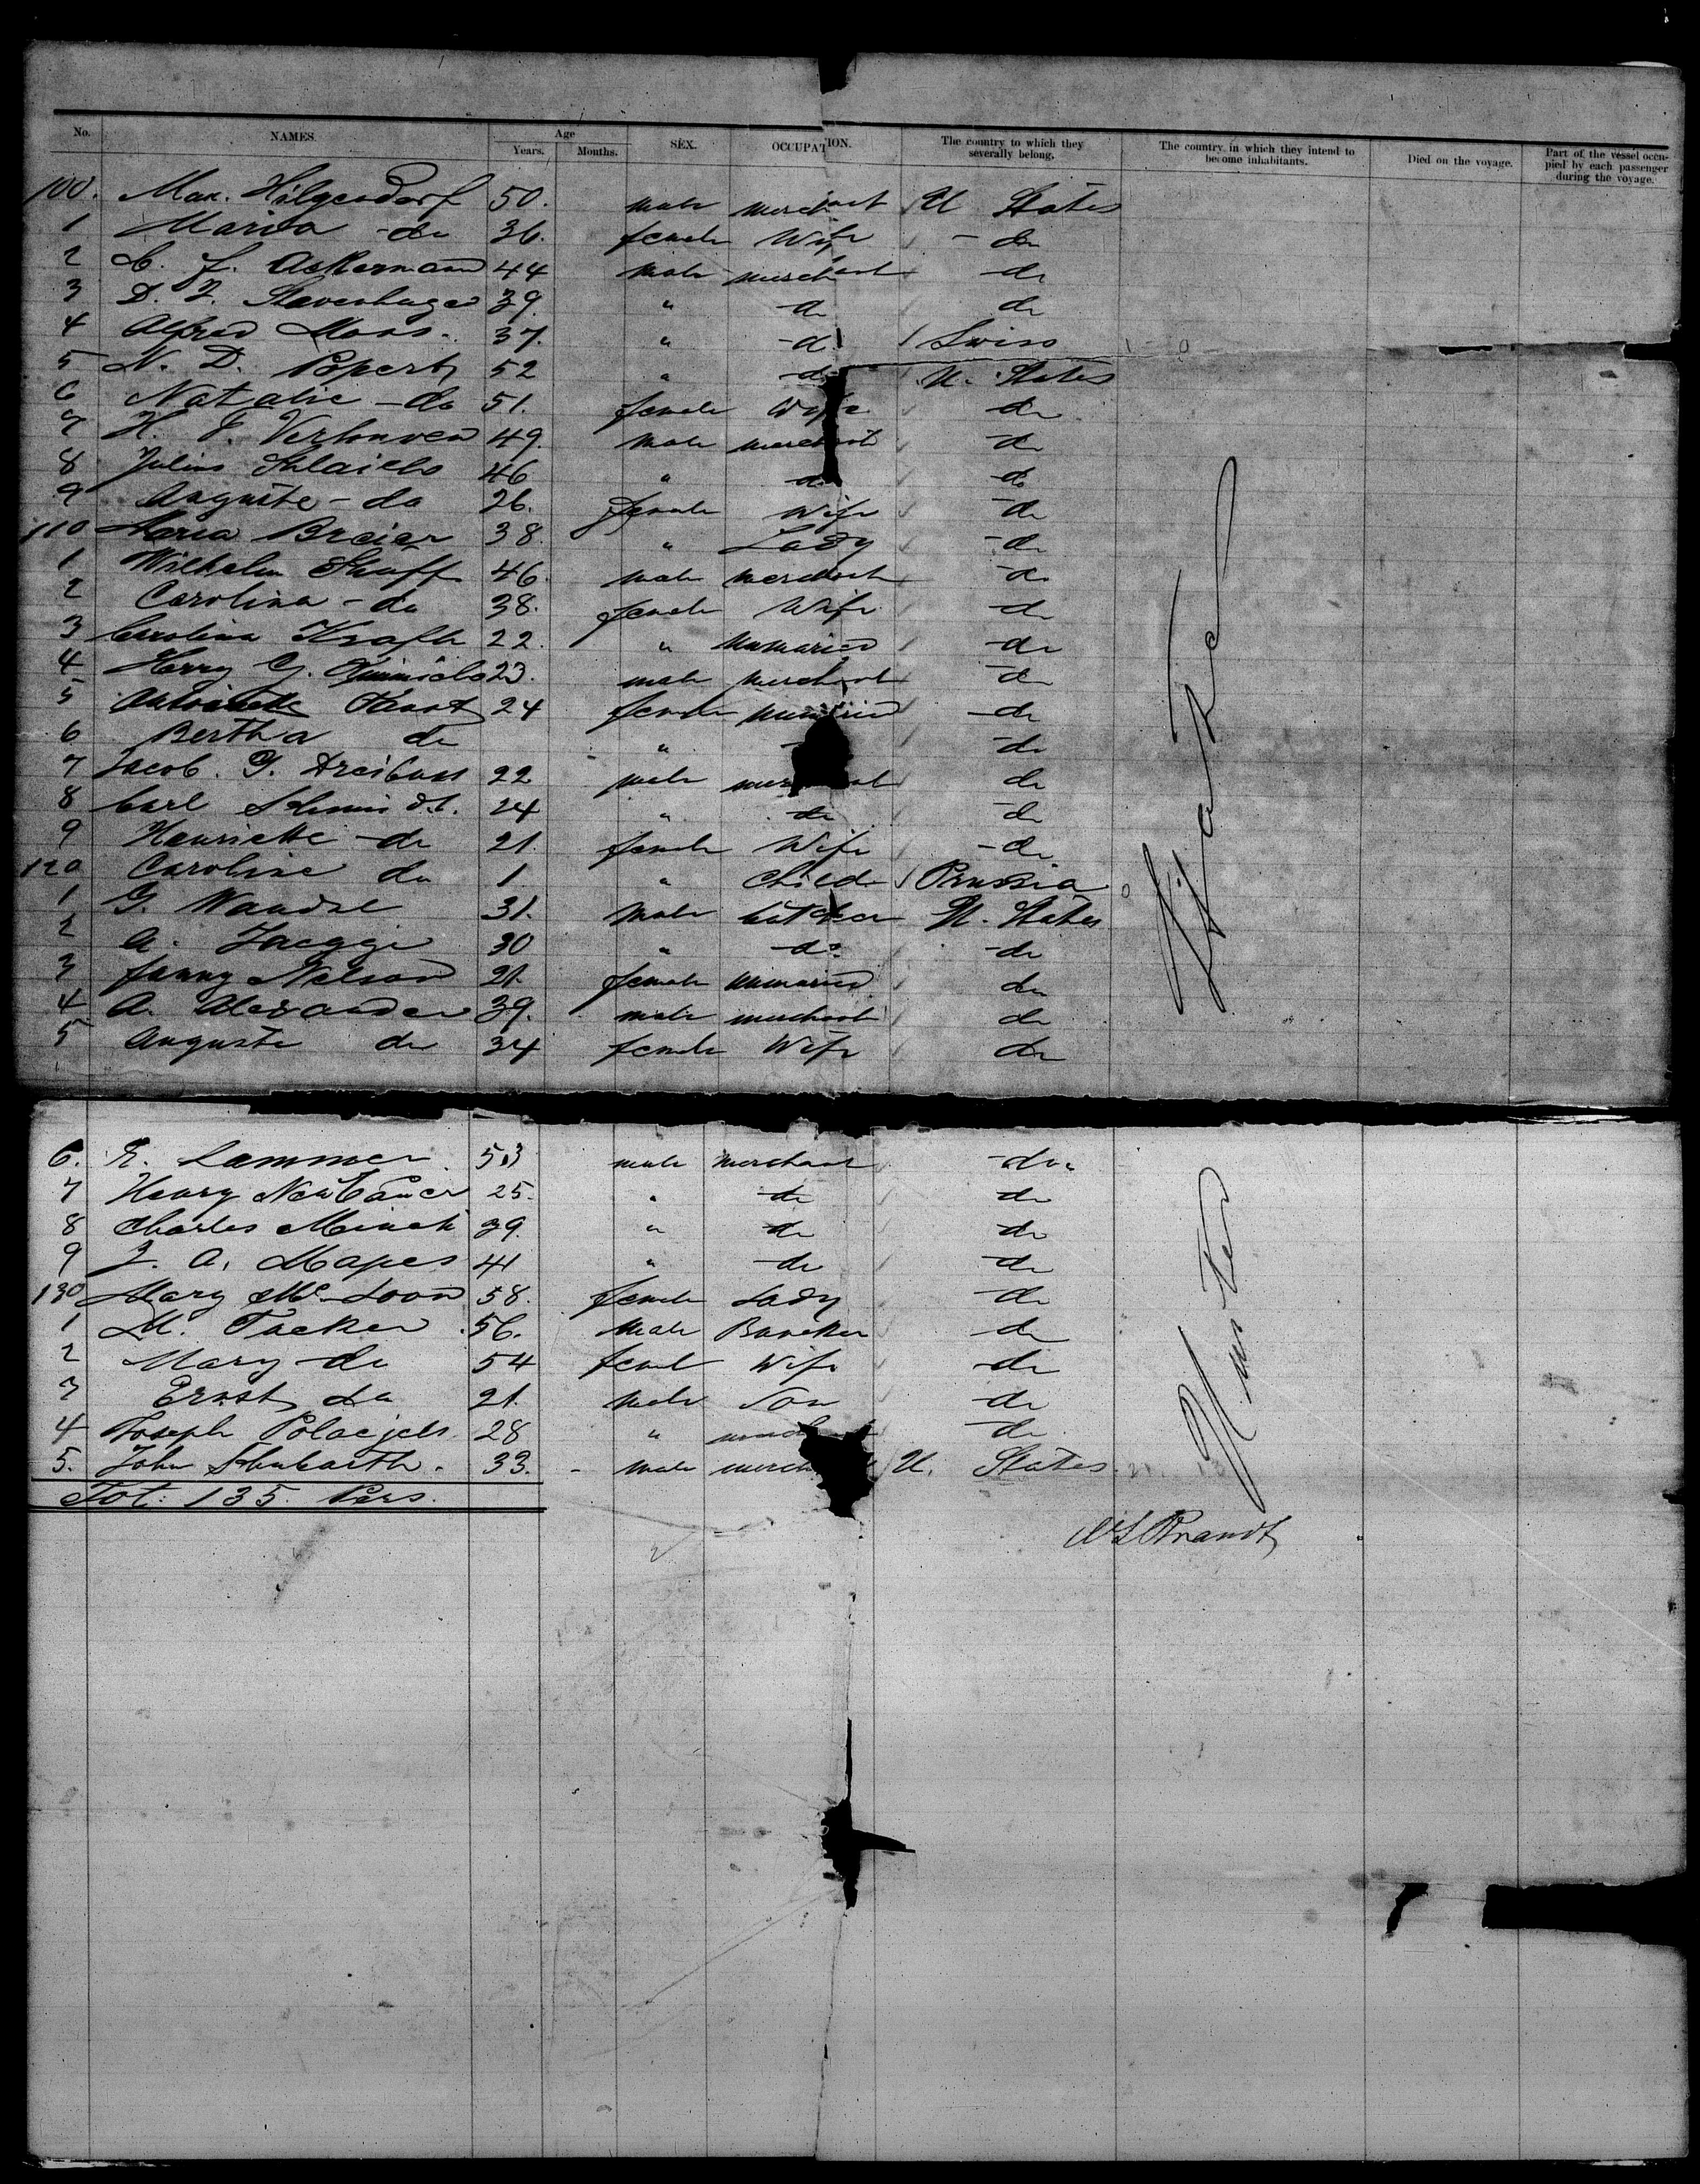 No. NAMES. Age Years. Months. SEX. OCCUPATION. The country to which they severally belong. The country in which they intend to become inhabitants. Died on the voyage. Part of the vessel occupied by each passenger during the voyage.
100. Max. Hilgendorf 50. male merchant U States
1 Maria do 36. female Wife do
2 C. F. Ackermann 44 male merchant do
3 D. Stavenhagen 39. " do do
4 Alfred Moos. 37. " do Swiss
5 N. D. Popert 52 " do U. States
6 Natalie do 51. female Wife do
7 H. J. Verhouven 49. male merchant do
8 Julius Schlaich 46 " do do
9 Auguste do 26. female Wife do
110 Maria Breier 38. " Lady do
1 Wilhelm 46. male merchant do
2 Carolina do 38. female Wife do
3 Carolina Kraft 22. " unmaried do
4 Harry G. 23. male merchant do
5 Antoinette 24 female unmaried do
6 Bertha do " do
7 Jacob. G. Dreifuss 22 male merchant do
8 Carl Schmidt. 24 " do do
9 Henriette do 21. female Wife do
120 Caroline do 1 " child Prussia
1 G. 31. male butcher U. States
2 A. Jaeggi 30 " do do
3 fanny Nelson 21. female unmaried do
4 A. Alexander 39. male merchant do
5 Auguste do 34 female Wife do
6. E. Lammer 53 male merchant do
7 Henry Neubauer 25. " do do
8 Charles Minch 39. " do do
9 J. A. Mapes 41 " do do
130 Mary Mc Loon 58. female Lady do
1 M. Tucker 56. male Bancker do
2 Mary do 54 femal Wife do
3 Ernst do 21. male Son do
4 Joseph 28 " merchant do
5. John Schubarth. 33. male merchant U. States
Tot: 135. Pers.
United States
Brandt